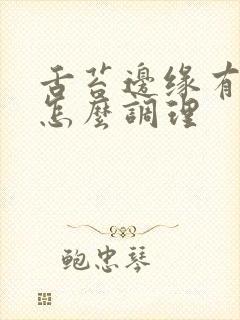 舌苔邊缘有
怎麼調理
鲍忠琴